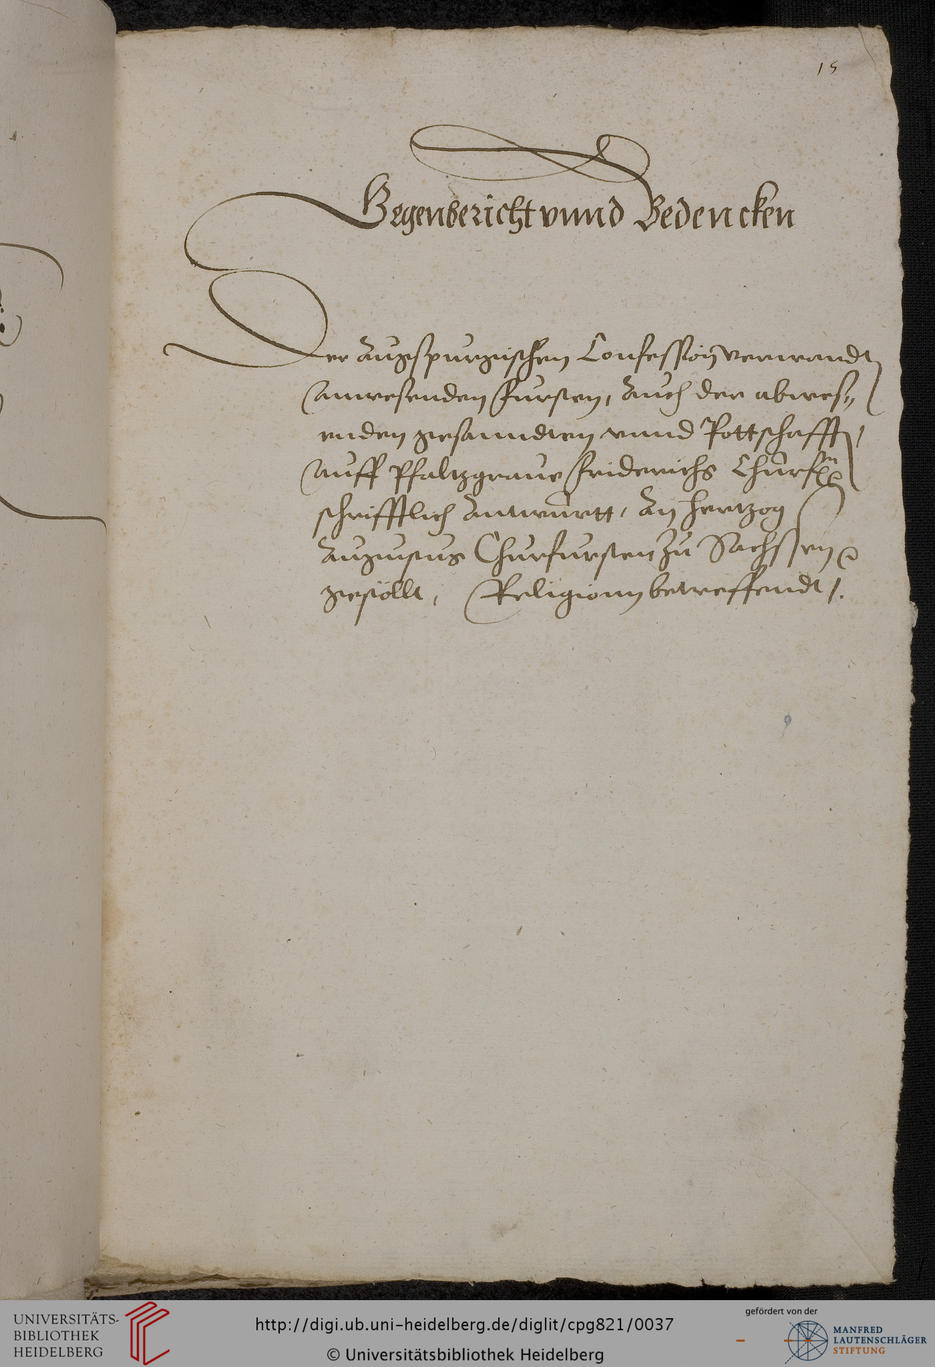 15
Gegenbericht vnnd Bedencken
Der Augspurgischen Confession verwandt
anwesenden Fursten, Auch der abwes„
enden gesanndten vnnd Pottschafft,
Auff Pfaltzgraue Friderichs Churf
schrifftlich Antwurtt, An Hertzog
Augustus Churfursten zu Sachssen
gestöllt, Religionn betreffendt /.
UNIVERSITÄTS-
BIBLIOTHEK
HEIDELBERG
http://digi.ub.uni-heidelberg.de/diglit/cpg821/0037
© Universitätsbibliothek Heidelberg
gefördert von der
MANFRED
LAUTENSCHLÄGER
STIFTUNG